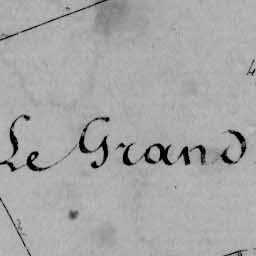 Le Grand